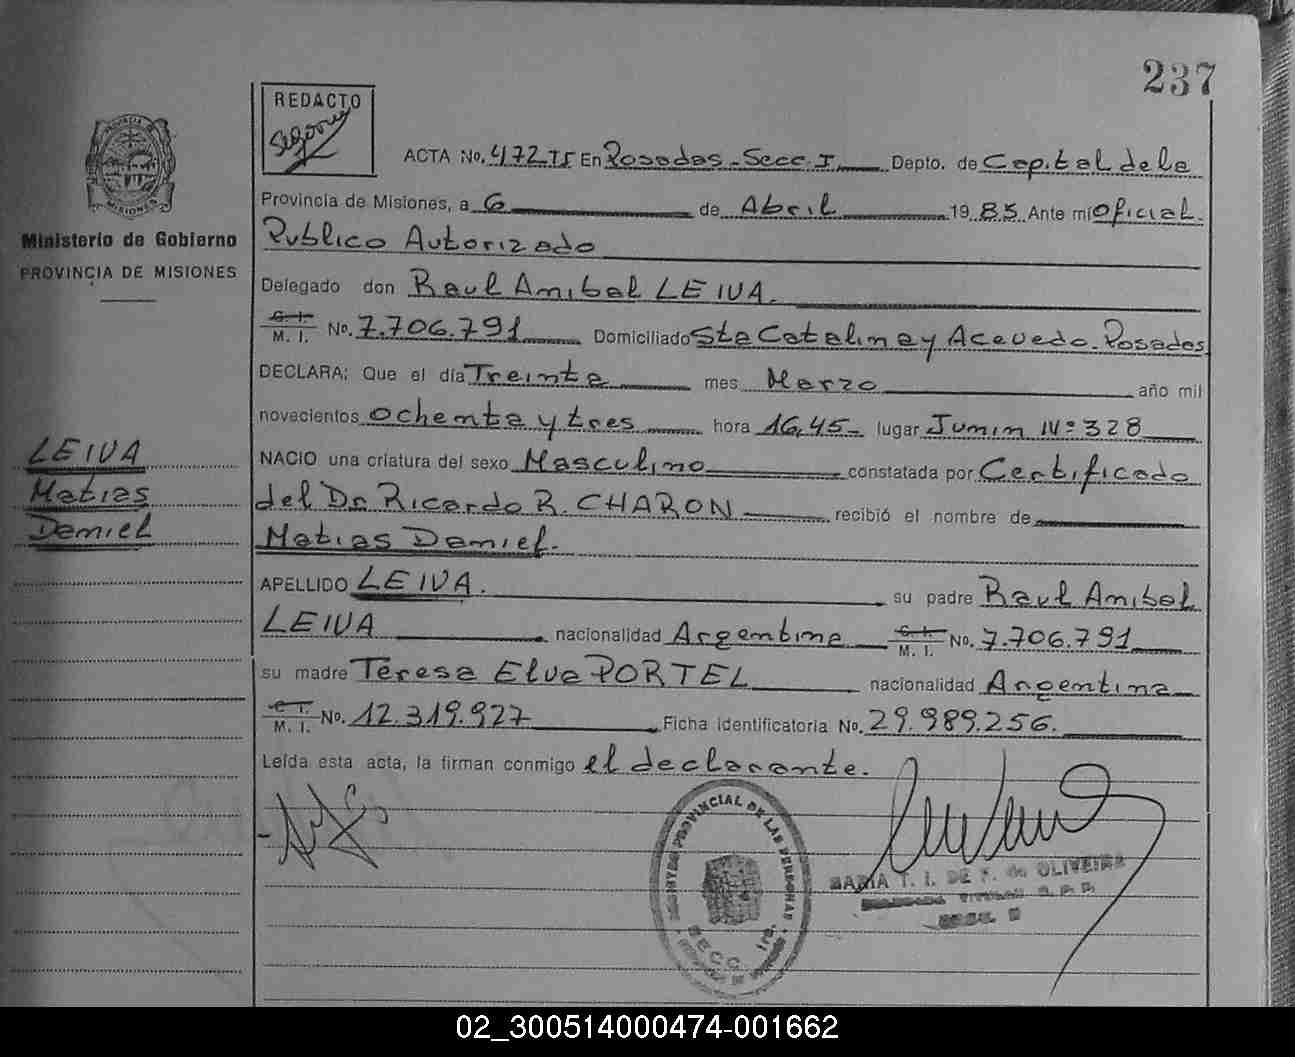 237
REDACTO
Segovia
ACTA No. 472 TI En Posadas - Secc. I. Depto. de Capital de la
Provincia de Misiones, a 6 de Abril 1985 Ante mi Oficial
Publico Autorizado
Delegado don Raul Anibal LEIVA.
C. I.
M. I. No. 7.706.791 Domiciliado Sta Catalina y Acevedo. Posadas
DECLARA; Que el día Treinta mes Marzo año mil
novecientos ochenta y tres hora 16,45 - lugar Junin Nº 328
NACIO una criatura del sexo Masculino constatada por Certificado
del Dr. Ricardo R. CHARON recibió el nombre de
Matias Daniel.
APELLIDO LEIVA. su padre Raul Anibal
LEIVA nacionalidad Argentina C. I.
M. I. No. 7.706.791
su madre Teresa Elva PORTEL nacionalidad Argentina
C. I.
M. I. No. 12.319.927 Ficha identificatoria No. 29.989.256.
Leída esta acta, la firman conmigo el declarante.
PROVINCIA DE
MISIONES
Ministerio de Gobierno
PROVINCIA DE MISIONES
LEIVA
Matias
Daniel
REGISTRO PROVINCIAL DE LAS PERSONAS
SECC. 1ra.
MARIA T. I. DE F. de OLIVEIRA
02_300514000474-001662